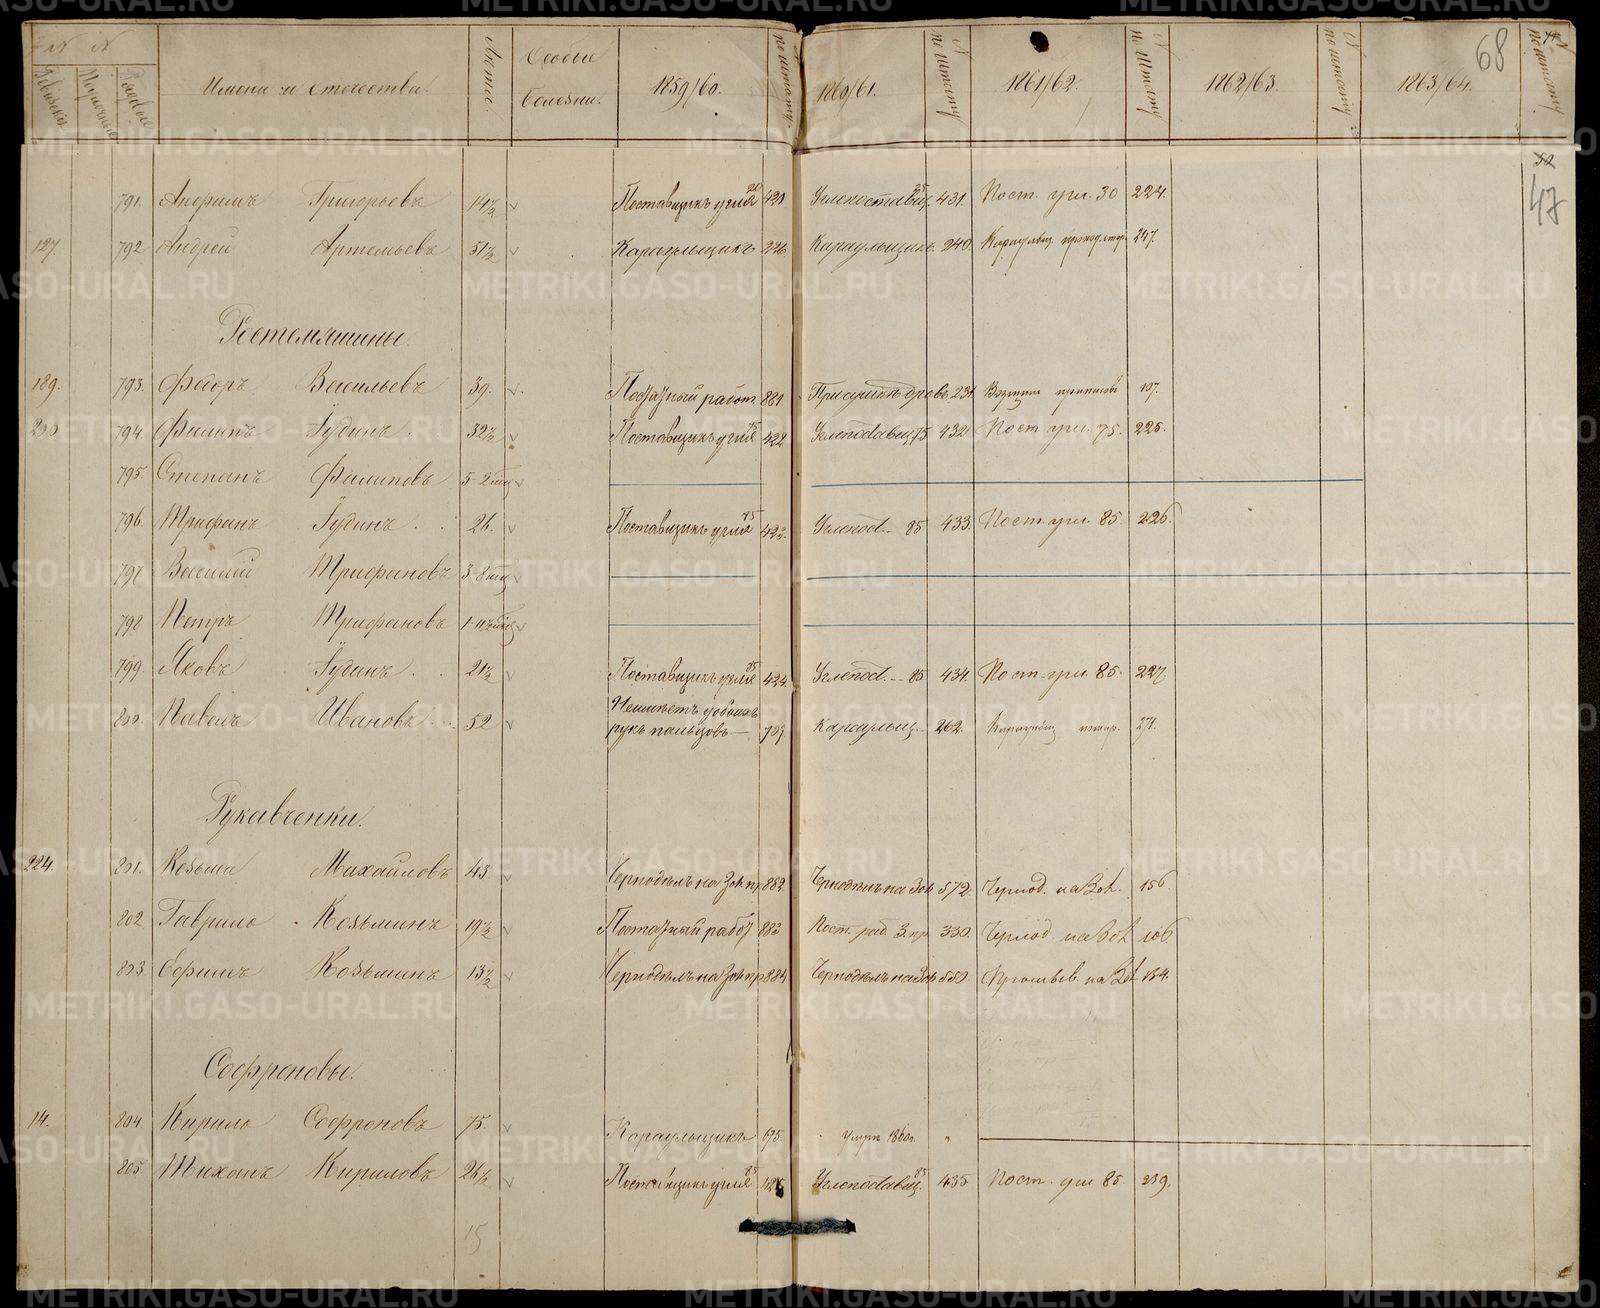 68
№ №
Ревизскiе
Рядовые
Имена и отечества.
Лѣта.
Особые болѣзни.
1859/60.
по штату.
1860/61.
№ по штату
1861/62.
№ по штату
1862/63.
№ по штату
1863/64.
№ по штату
52
47
791. Анфимъ Григорьевъ 14½ Поставщикъ угля 20 421 Углепоставщ. 25 431. Пост. угл. 30 224.
127. 792 Андрей Артемьевъ 51½ Караульщикъ 226 Караульщикъ 240. Караульщ. 247.
Ростемяшины.
189. 793. Федоръ Васильевъ 39. Поденный работ 881. 231 197.
200 794 Филипъ Юдинъ 32½ Поставщикъ угля 75 422 Углепоставщ. 75 432 Пост. угл. 75. 225.
795. Степанъ Филиповъ 5-2 мѣц
796. Трифанъ Юдинъ 26. Поставщикъ угля 75 423. Углепост. 85 433. Пост. угл. 85. 226.
797 Василiй Трифановъ 3-8 мѣц
798 Петръ Трифановъ 1-11½ мѣц
799. Яковъ Юдинъ 21½ Поставщикъ угля 85 424. Углепост. 85 434. Пост. угл. 85. 227
800. Павелъ Ивановъ 52 Неимѣетъ у обоихъ
рукъ пальцовъ 709 Караульщ. 262. Караульщ. 271.
Рукавченки.
224. 801. Козьма Михайловъ 43. Чернодѣлъ на Зол. пр 882 Чернодѣлъ на Зол 572. Чернод. на Зол. 156
802 Гаврило Козьминъ 19½ Постоянный работ 883 Пост. раб. З. пр 330. Чернод. на Зол 106.
803 Ефимъ Козьминъ 13½ Чернодѣлъ на Зол пр 884 Чернодѣлъ на Зол 550. Промыв. на Зол 134.
Софроновы.
14. 804. Кирило Софроновъ 75. Караульщикъ 675. Умеръ 1860 г. "
805. Тихонъ Кириловъ 26½ Поставщикъ угля 85 425 Углепоставщ. 85 435 Пост. угл 85. 239.
15
METRIKI.GASO-URAL.RU